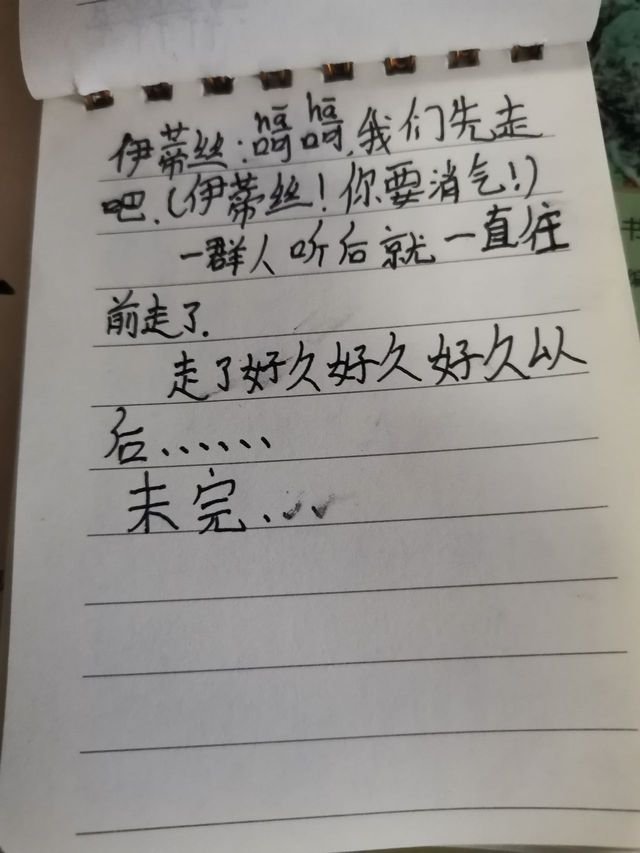 hā hā
伊蒂丝:呵呵,我们先走
吧.(伊蒂丝!你要消气!)
一群人听后就一直往
前走了.
走了好久好久好久以
后......
未完...